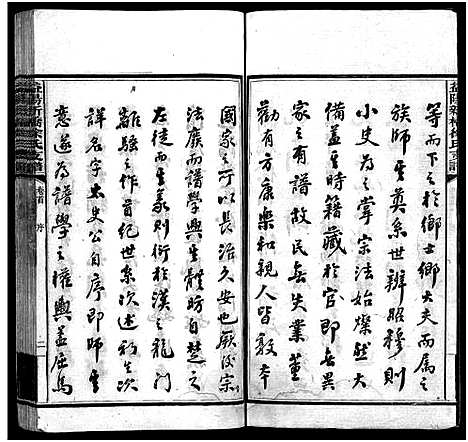 益陽新橋徐氏支譜
等而下之於鄉士鄉大夫而屬之
族師墨奠系世辨昭穆則
小史為之掌宗法始燦然大
備蓋其時籍藏於官即無異
家之有乘故民無失業董
勸有方康樂和親人皆敦本
國家之所以長治久安也厥後宗
法廢而譜學興其體昉自楚之
左徒而其義則衍於漢之龍門
離騷之作首紀世系次述初生次
詳名字太史公自序即師其
意遂為譜學之權輿蓋屈馬
益陽新橋徐氏支譜
卷首
序
二